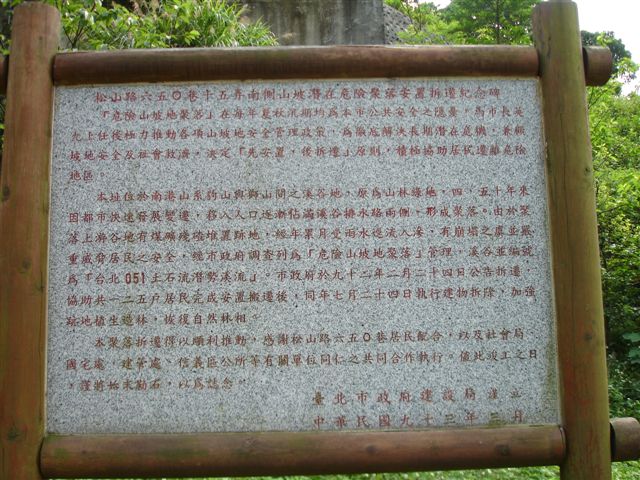 松山路六五０巷十五弄南側山坡潛在危險聚落安置拆遷紀念碑
「危險山坡地聚落」在每年夏秋汛期均為本市公共安全之隱憂，馬市長英
九上任後極力推動各項山坡地安全管理政策，為徹底解決長期潛在危機，兼顧
坡地安全及社會救濟，決定「先安置，後拆遷」原則，積極協助居民遷離危險
地區。
本址位於南港山系豹山與獅山間之溪谷地，原為山林綠地，四、五十年來
因都市快速發展變遷，移入人口逐漸佔滿溪谷排水路兩側，形成聚落。由於聚
落上游谷地有煤礦殘碴堆置跡地，經年累月受雨水逕流入滲，有崩塌之虞並嚴
重威脅居民之安全，經市政府調查列為「危險山坡地聚落」管理，溪谷並編號
為「台北051土石流潛勢溪流」。市政府於九十二年二月二十四日公告拆遷，
協助共一二五戶居民完成安置搬遷後，同年七月二十四日執行建物拆除，加強
跡地植生造林，恢復自然林相。
本聚落拆遷得以順利推動，感謝松山路六五０巷居民配合，以及社會局
國宅處、建管處、信義區公所等有關單位同仁之共同合作執行。值此竣工之日
，謹將始末勒石，以為誌念。
臺北市政府建設局謹立
中華民國九十三年三月